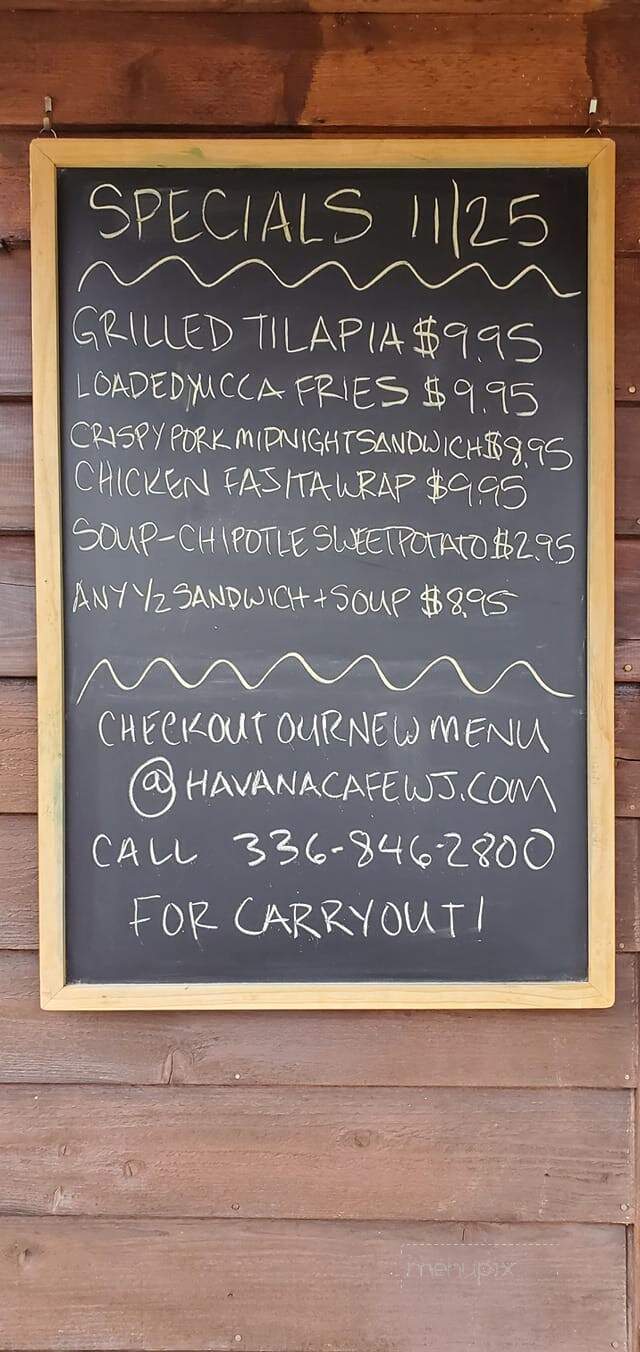 SPECIALS 11/25
GRILLED TILAPIA $9.95
LOADED YUCCA FRIES $9.95
CRISPY PORK MIDNIGHT SANDWICH $8.95
CHICKEN FAJITA WRAP $9.95
SOUP-CHIPOTLE SWEET POTATO $2.95
ANY 1/2 SANDWICH + SOUP $8.95
CHECK OUT OUR NEW MENU
@ HAVANACAFEWJ.COM
CALL 336-846-2800
FOR CARRYOUT!
menupix